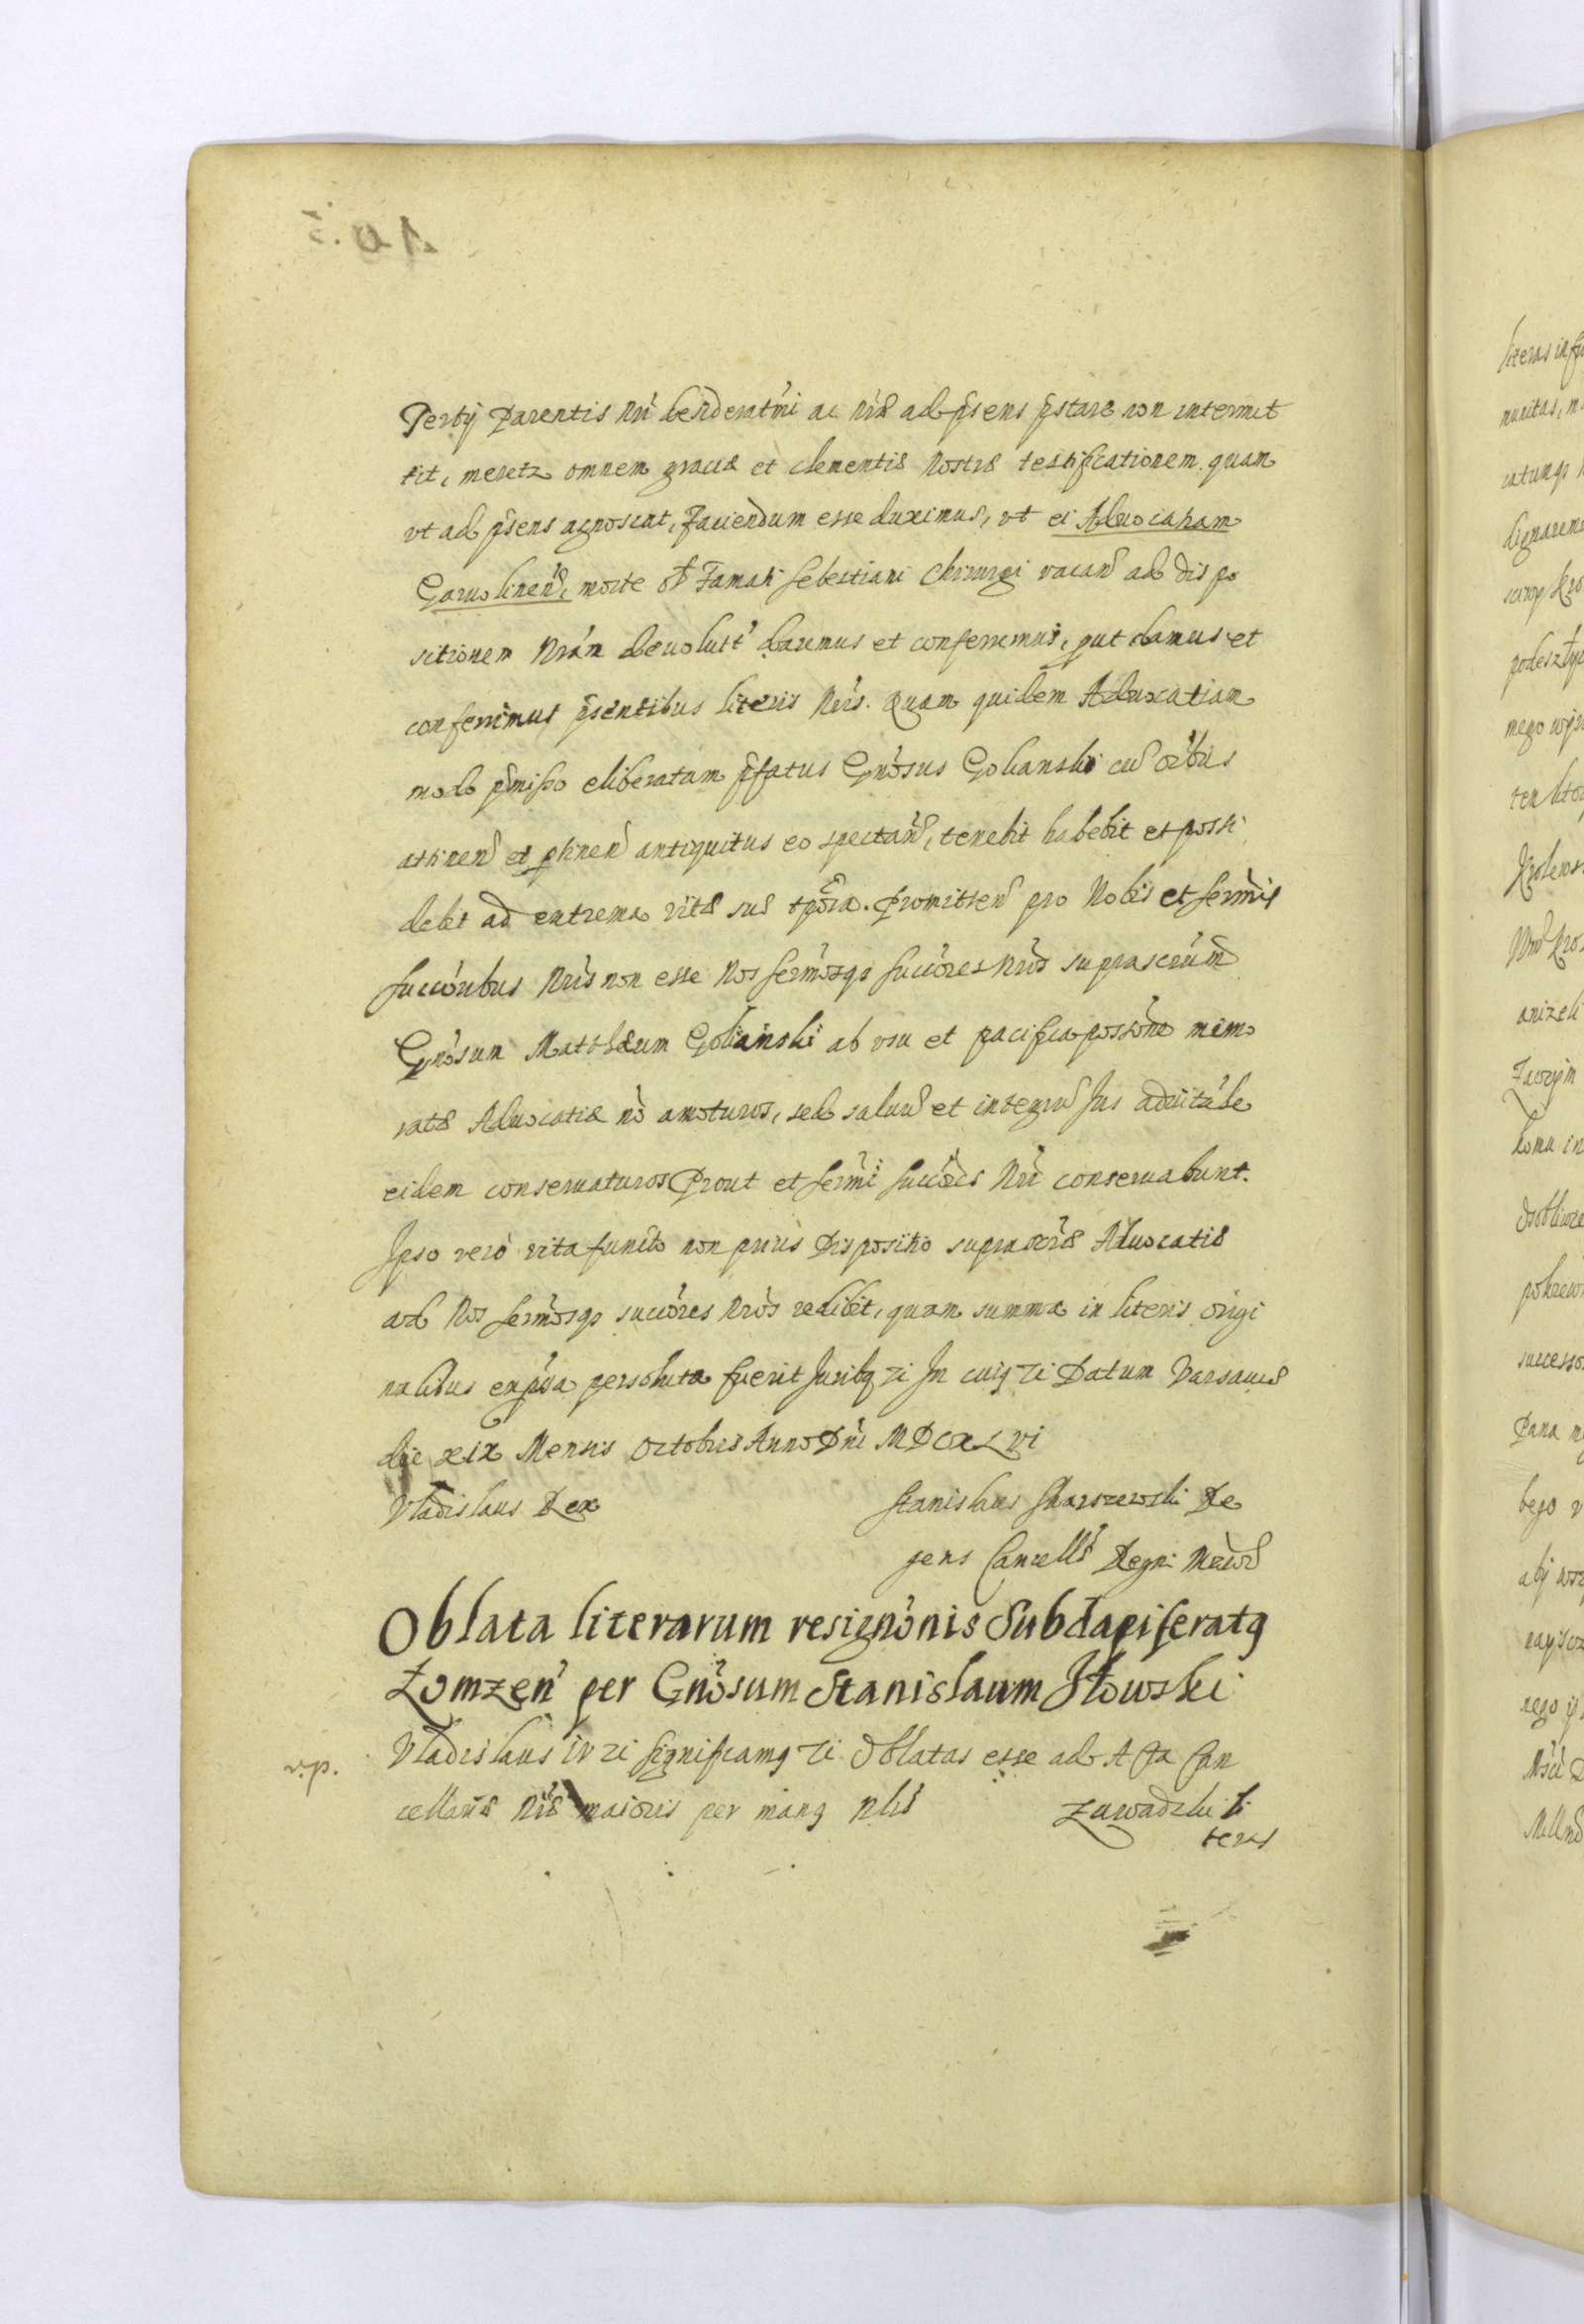 Tertij Parentis Nri desideratmi ac nrae ad psens pstare non intermit
tit, meretz omnem gratiae et clementiae Nostrae testificationem. quam
vt ad psens agnoscat, faciendum esse duximus, vt ei Aduocatiam
Garuolinen, morte Famati Sebestiani Chirurgi vacan ad dispo
sitionem Nram deuolutt daremus et conferremus, put damus et
conferrimus psentibus literis Nris. Quam quidem Aduocatiam
modo pmisso eliberatam pfatus Gnosus Golianski cu oibus
attinen et ptinen antiquitus eo spectan, tenebit habebit et possi
debit ad extrema vitae suae tpora. Promitten pro Nobis et Sermis
Succoribus Nris non esse Nos Sermosqz Succores Nros suprascrum
Gnosum Matthaeum Golianski ab vsu et pacifica possone memo
ratae Aduocatiae no amoturos, sed saluu et integru Jus aduitale
eidem conseruaturos Prout et Sermi Succores Nri conseruabunt.
Ipso vero vita functo non prius Dispositio suprascrae Aduocatiae
ad Nos Sermosqz succores Nros redibit, quam summa in literis origi
nalibus expssa persoluta fuerit Juribq zi In cuiq zi Datum Varsauiae
die xix Mensis Octobris Anno Dni MDCXLVI
Vladislaus Rex
Stanislaus Skarszewski Re
gens Cancellae Regni
Oblata literarum resignonis Subdapiferatq
Łomzen per Gnosum Stanislaum Iłowski
v.p. Vladislaus IV zi Significamq zi Oblatas esse ad Acta Can
cellariae Nrae maioris per manq Nblis Zawadzki li
teras